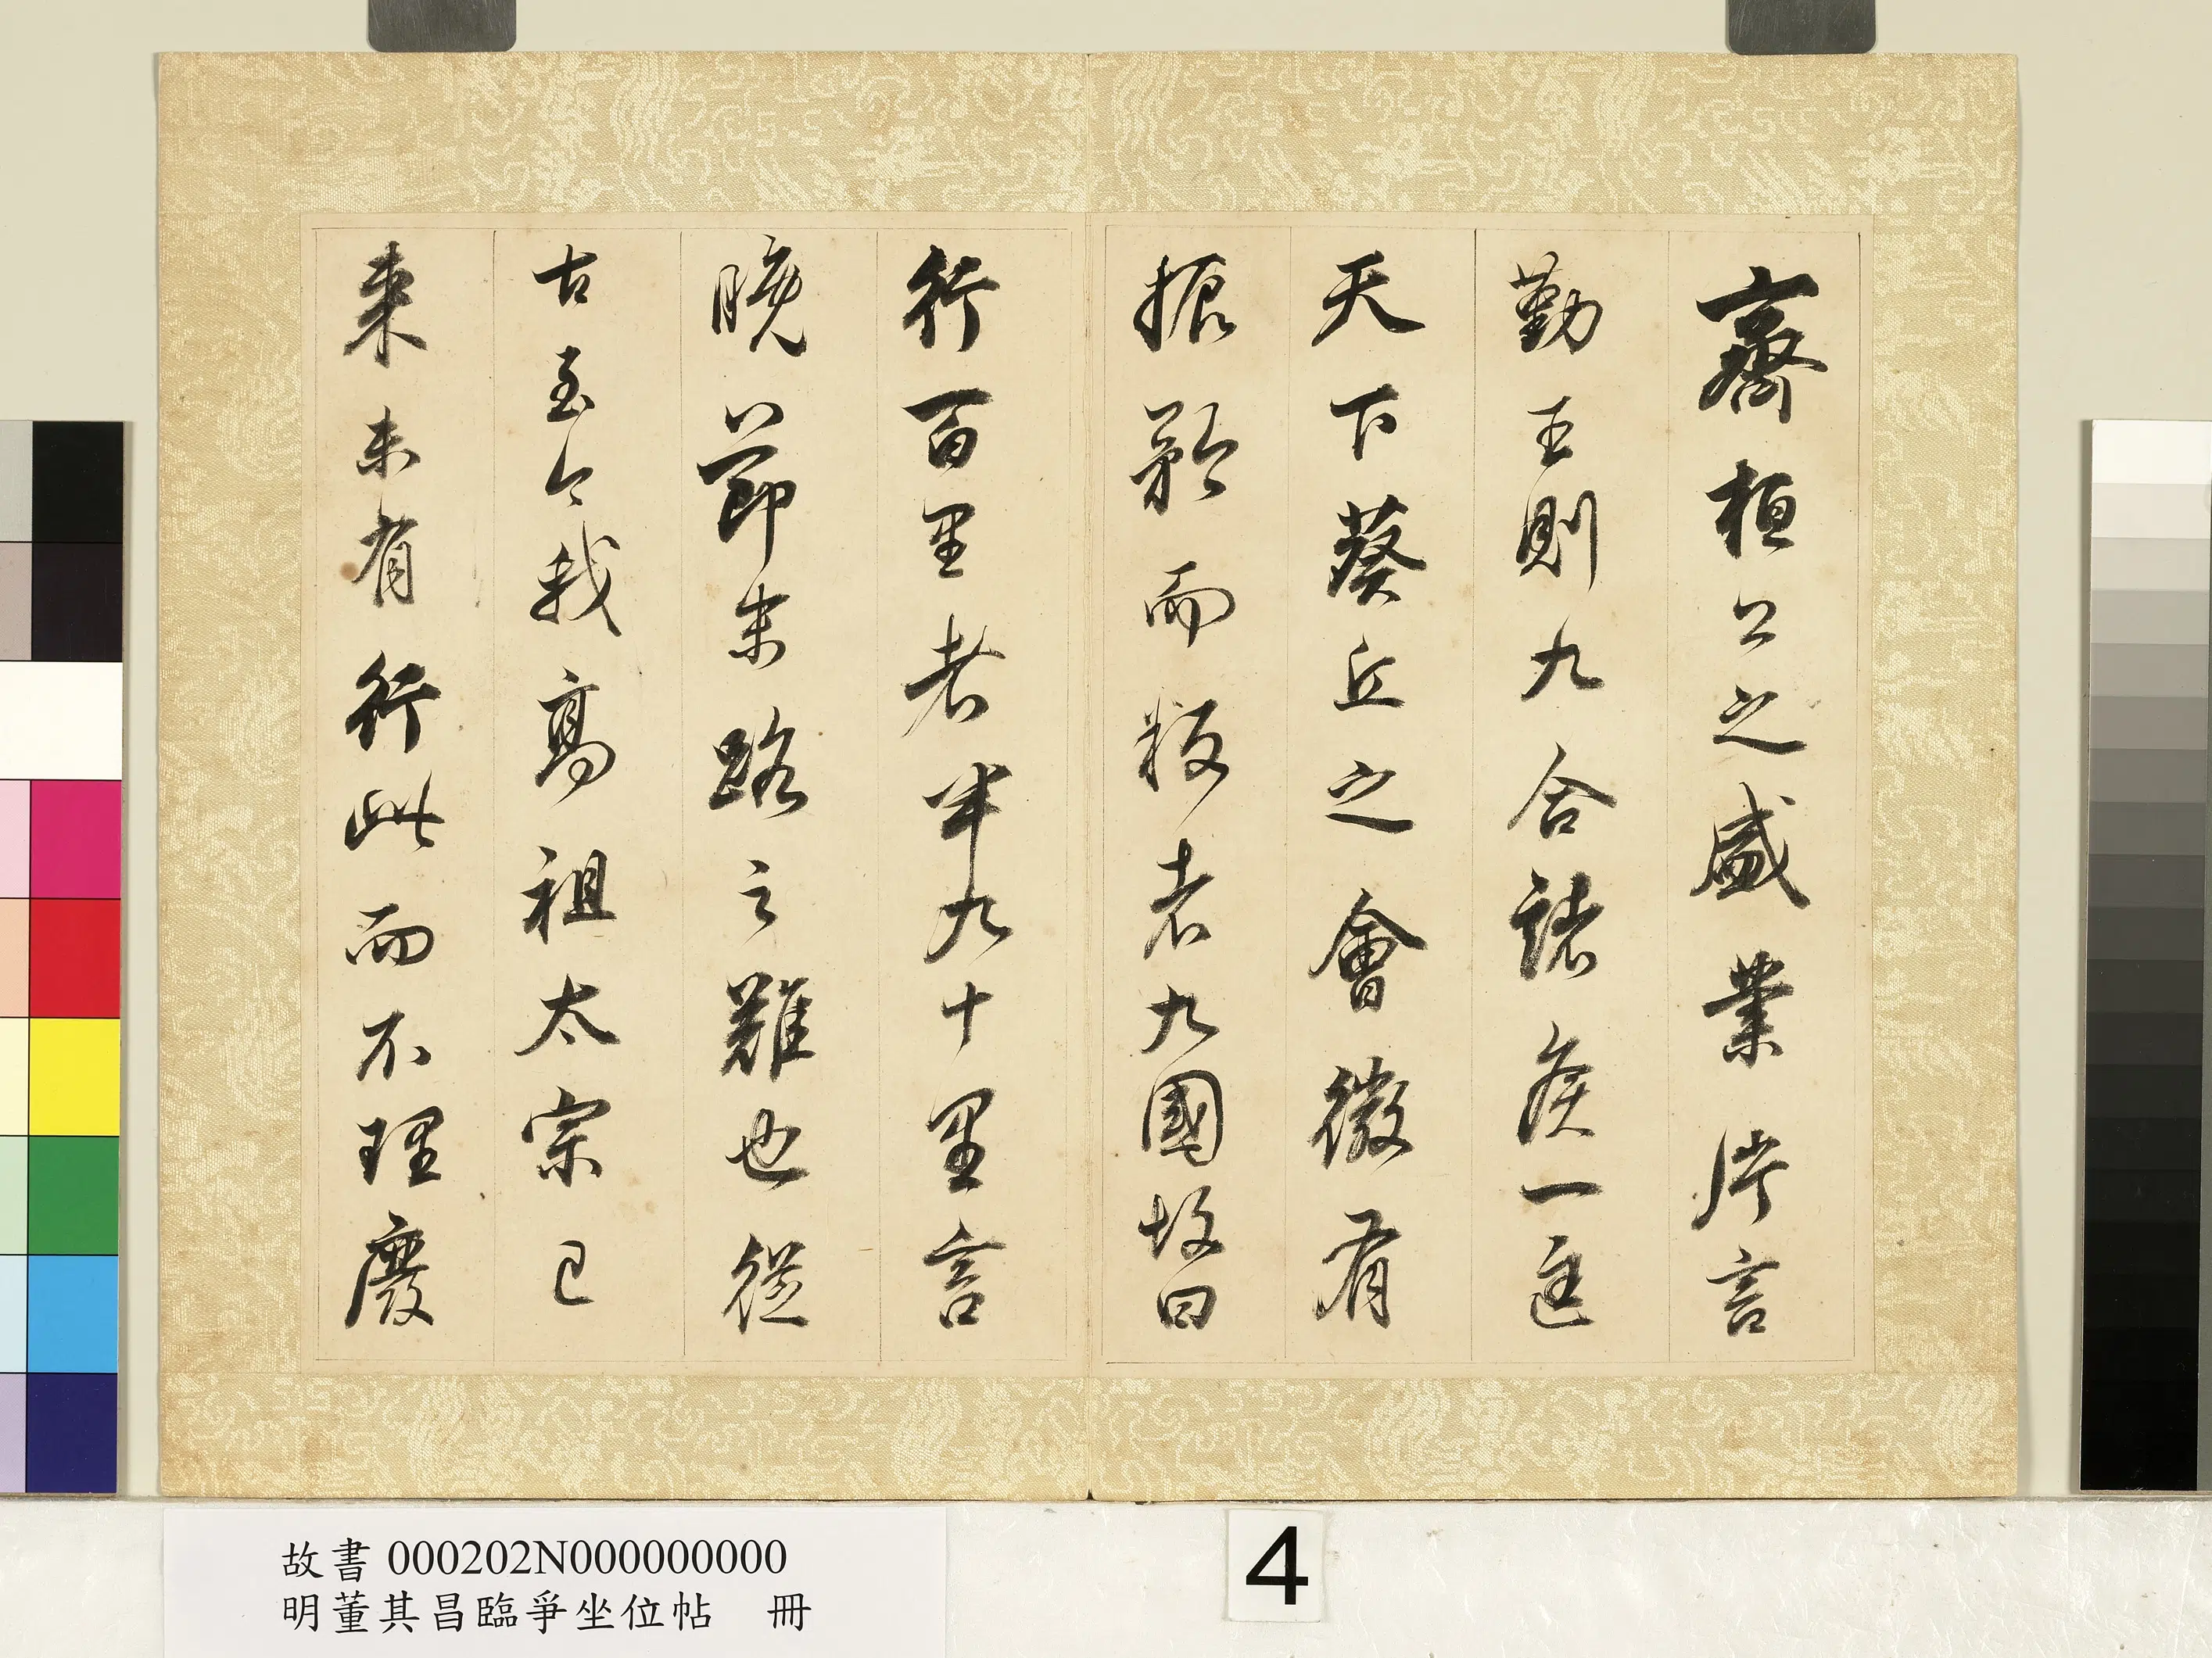 齊桓公之盛業片言
勤王則九合諸侯一匡
天下葵丘之會微有
振矜而叛者九國故曰
行百里者半九十里言
晚節末路之難也從
古至今我高祖太宗已
來未有行此而不理廢
故書 000202N000000000
明董其昌臨爭坐位帖 冊
4